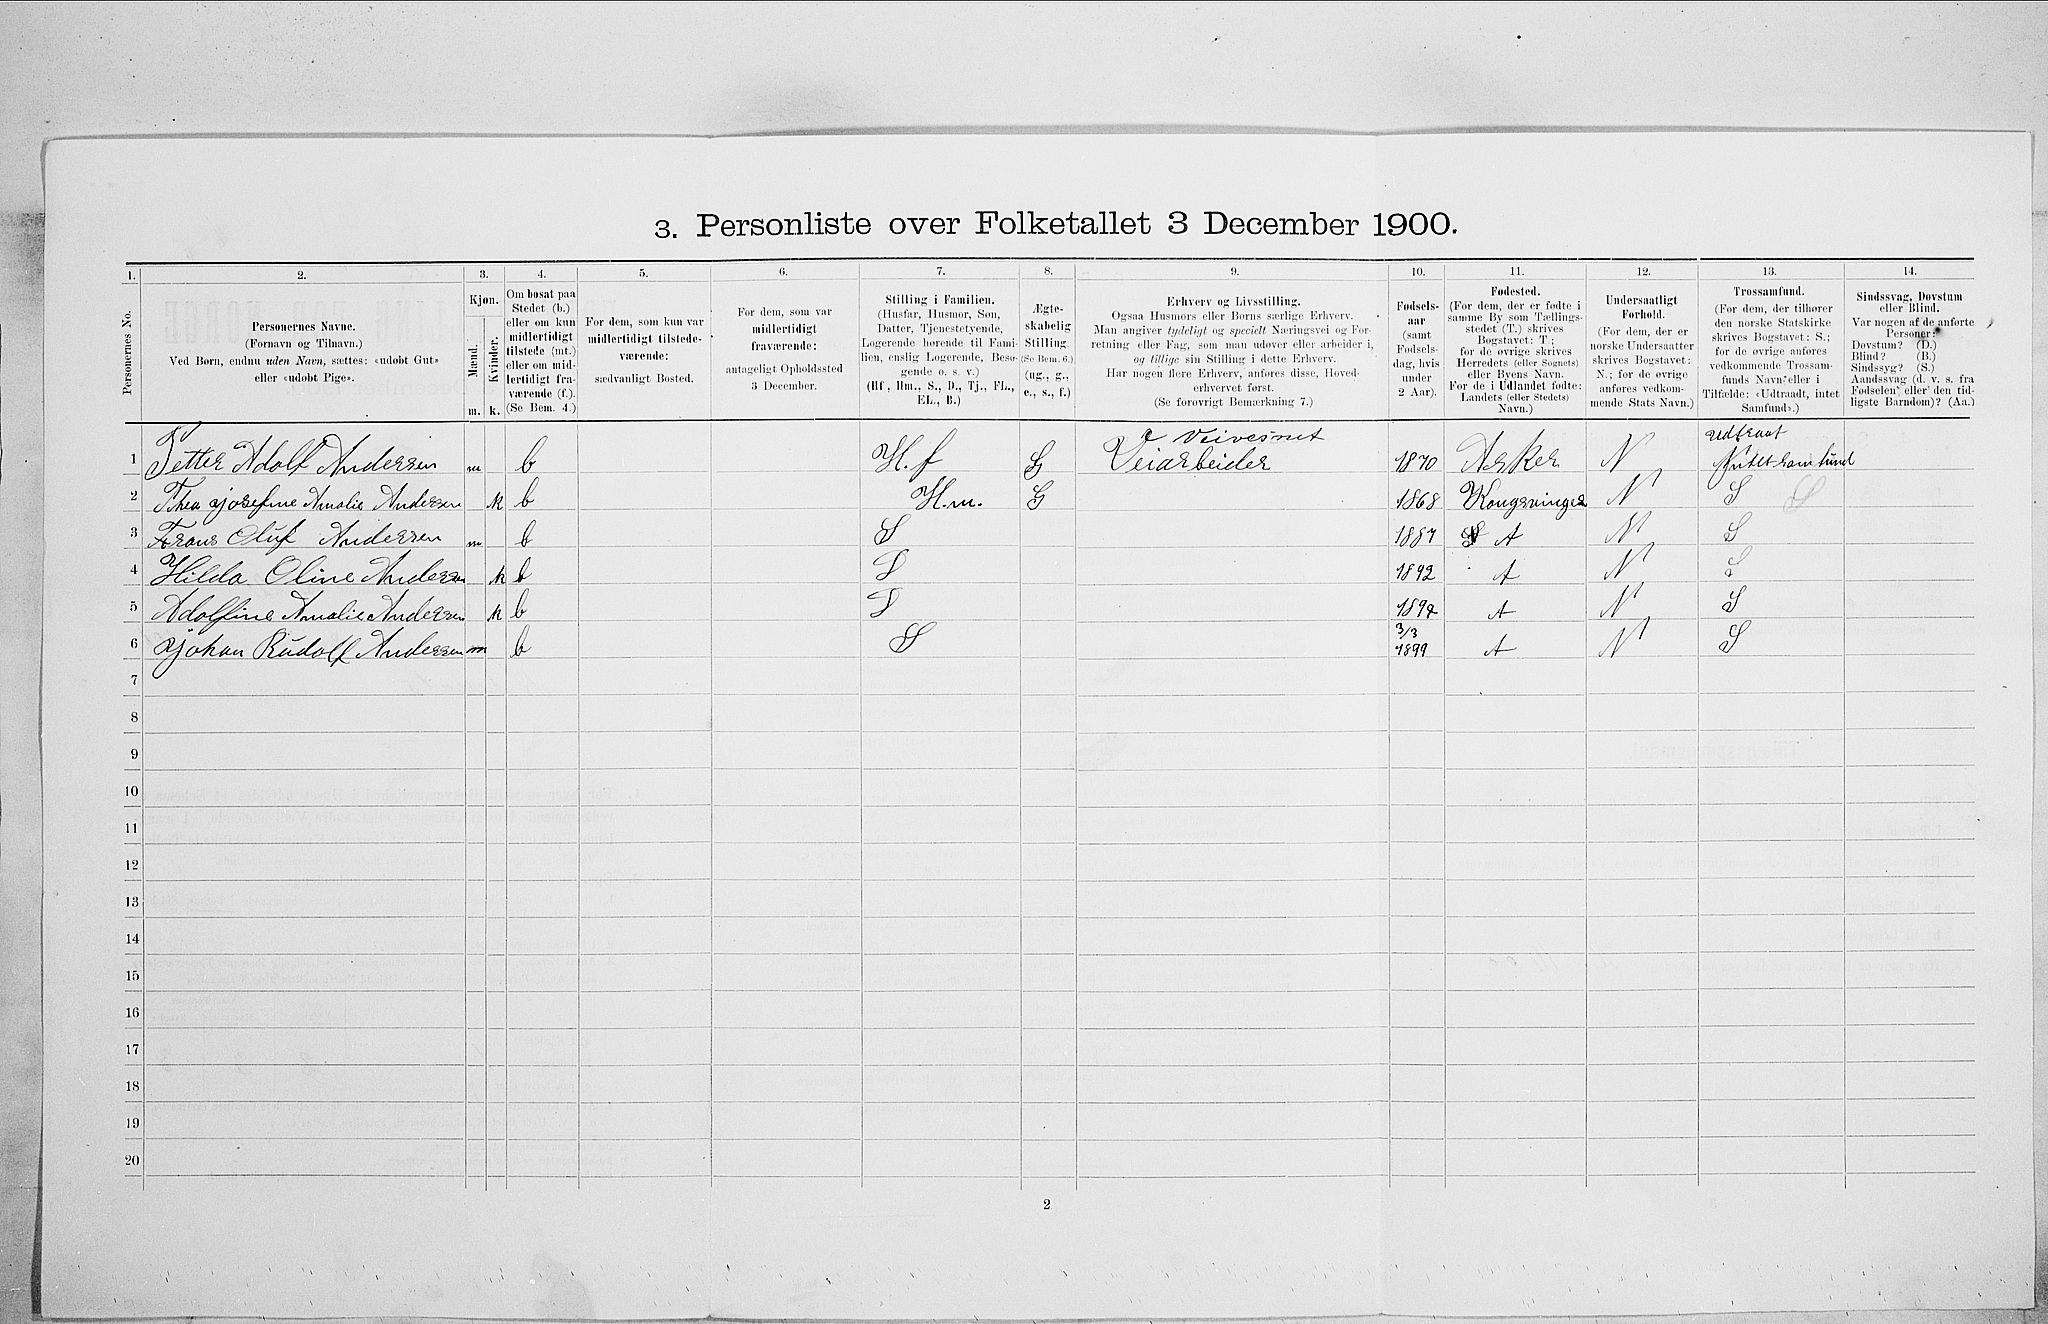 3. Personliste over Folketallet 3 December 1900.
1. 2. 3. 4. 5. 6. 7. 8. 9. 10. 11. 12. 13. 14.
Personernes No.
Personernes Navne.
(Fornavn og Tilnavn.)
Ved Børn, endnu uden Navn, sættes: «udøbt Gut»
eller «udøbt Pige».
Kjøn.
Mænd.
Kvinder.
m. k.
Om bosat paa
Stedet (b.)
eller om kun
midlertidigt
tilstede (mt.)
eller om mid-
lertidigt fra-
værende (f.).
(Se Bem. 4.)
For dem, som kun var
midlertidigt tilstede-
værende:
sædvanligt Bosted.
For dem, som var
midlertidigt
fraværende:
antageligt Opholdssted
3 December.
Stilling i Familien.
(Husfar, Husmor, Søn,
Datter, Tjenestetyende,
Logerende hørende til Fami-
lien, enslig Logerende, Besø-
gende o. s. v.)
(Hf, Hm., S., D., Tj., FL.,
EL., B.)
Ægte-
skabelig
Stilling.
(Se Bem. 6.)
(ug., g.,
e., s., f.)
Erhverv og Livsstilling.
Ogsaa Husmors eller Børns særlige Erhverv.
Man angiver tydeligt og specielt Næringsvei og For-
retning eller Fag, som man udøver eller arbeider i,
og tillige sin Stilling i dette Erhverv.
Har nogen flere Erhverv, anføres disse, Hoved-
erhvervet først.
(Se forøvrigt Bemærkning 7.)
Fødsels-
aar
(samt
Fødsels-
dag, hvis
under
2 Aar).
Fødested.
(For dem, der er fødte i
samme By som Tællings-
stedet (T.) skrives
Bogstavet: T;
for de øvrige skrives
Herredets (eller Sognets)
eller Byens Navn.
For de i Udlandet fødte:
Landets (eller Stedets)
Navn.)
Undersaatligt
Forhold.
(For dem, der er
norske Undersaatter
skrives Bogstavet:
N.; for de øvrige
anføres vedkom-
mende Stats Navn.)
Trossamfund.
(For dem, der tilhører
den norske Statskirke
skrives Bogstavet: S.;
for de øvrige anføres
vedkommende Trossam-
funds Navn eller i
Tilfælde: «Udtraadt, intet
Samfund».)
Sindssvag, Døvstum
eller Blind.
Var nogen af de anførte
Personer:
Døvstum? (D.)
Blind? (B.)
Sindssyg? (S.)
Aandssvag (d. v. s. fra
Fødselen eller den tid-
ligste Barndom)? (Aa.)
1 Petter Adolf Andersen m b H. f G Veiarbeider 1870 Asker N
2 Thea Josefine Amalie Andersen k b H.m. G 1868 Kongsvinger N S S
3 Frans Oluf Andersen m b S 1887 A N S
4 Hilda Oline Andersen k b 1892 A N S
5 Adolfine Amalie Andersen k b 1894 A N S
6 Johan Rudolf Andersen m b S 3/3 1899 A N S
7
8
9
10
11
12
13
14
15
16
17
18
19
20
2